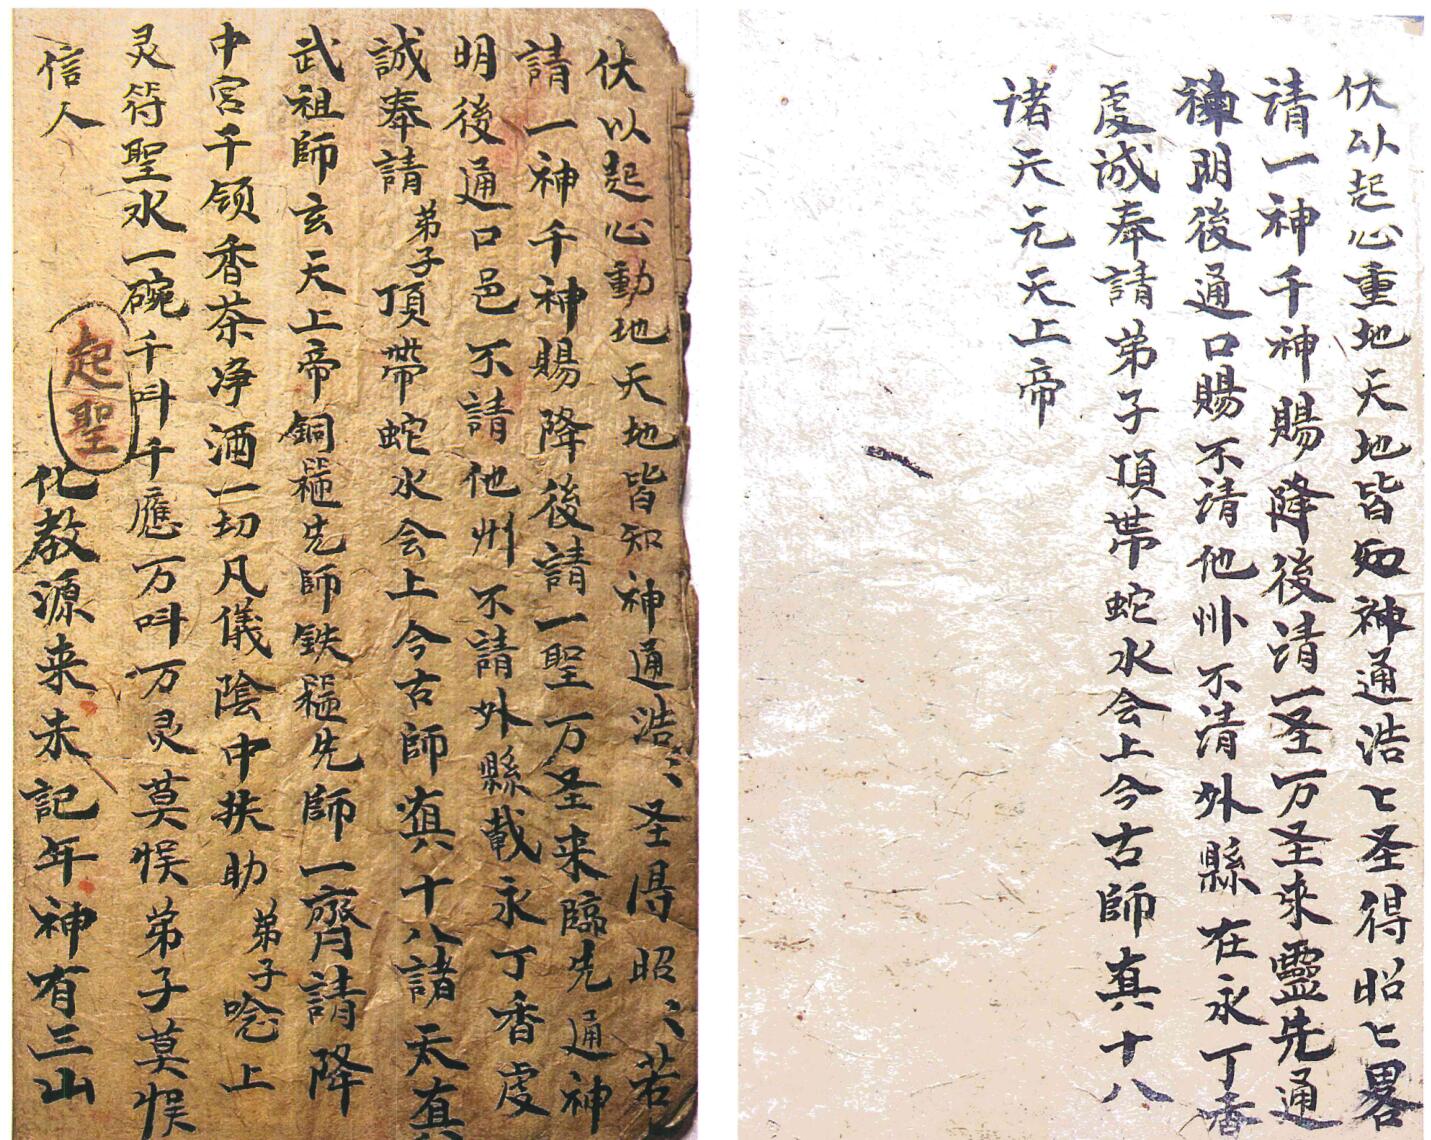 伏以起心重地天地皆知神通浩〻圣得昭〻畧
请一神千神賜降後請一圣万圣来靈先通
神明後通口賜不请他州不清外縣在永丁香
虔诚奉請弟子頂带蛇水会上今古師真十八
诸天元天上帝
伏以起心動地天地皆知神通浩〻圣得昭〻若
請一神千神賜降後請一聖万圣来臨先通神
明後通口邑不請他州不請外縣載永丁香虔
誠奉請弟子頂帶蛇水会上今古師真十八諸天真
武祖師玄天上帝銅師先師鉄先師一齊請降
中宫千领香茶净酒一切凡儀陰中扶助弟子唸上
灵符聖水一碗千叫千應万叫万灵莫悮弟子莫悮
信人
起聖
化教源来未記年神有三山